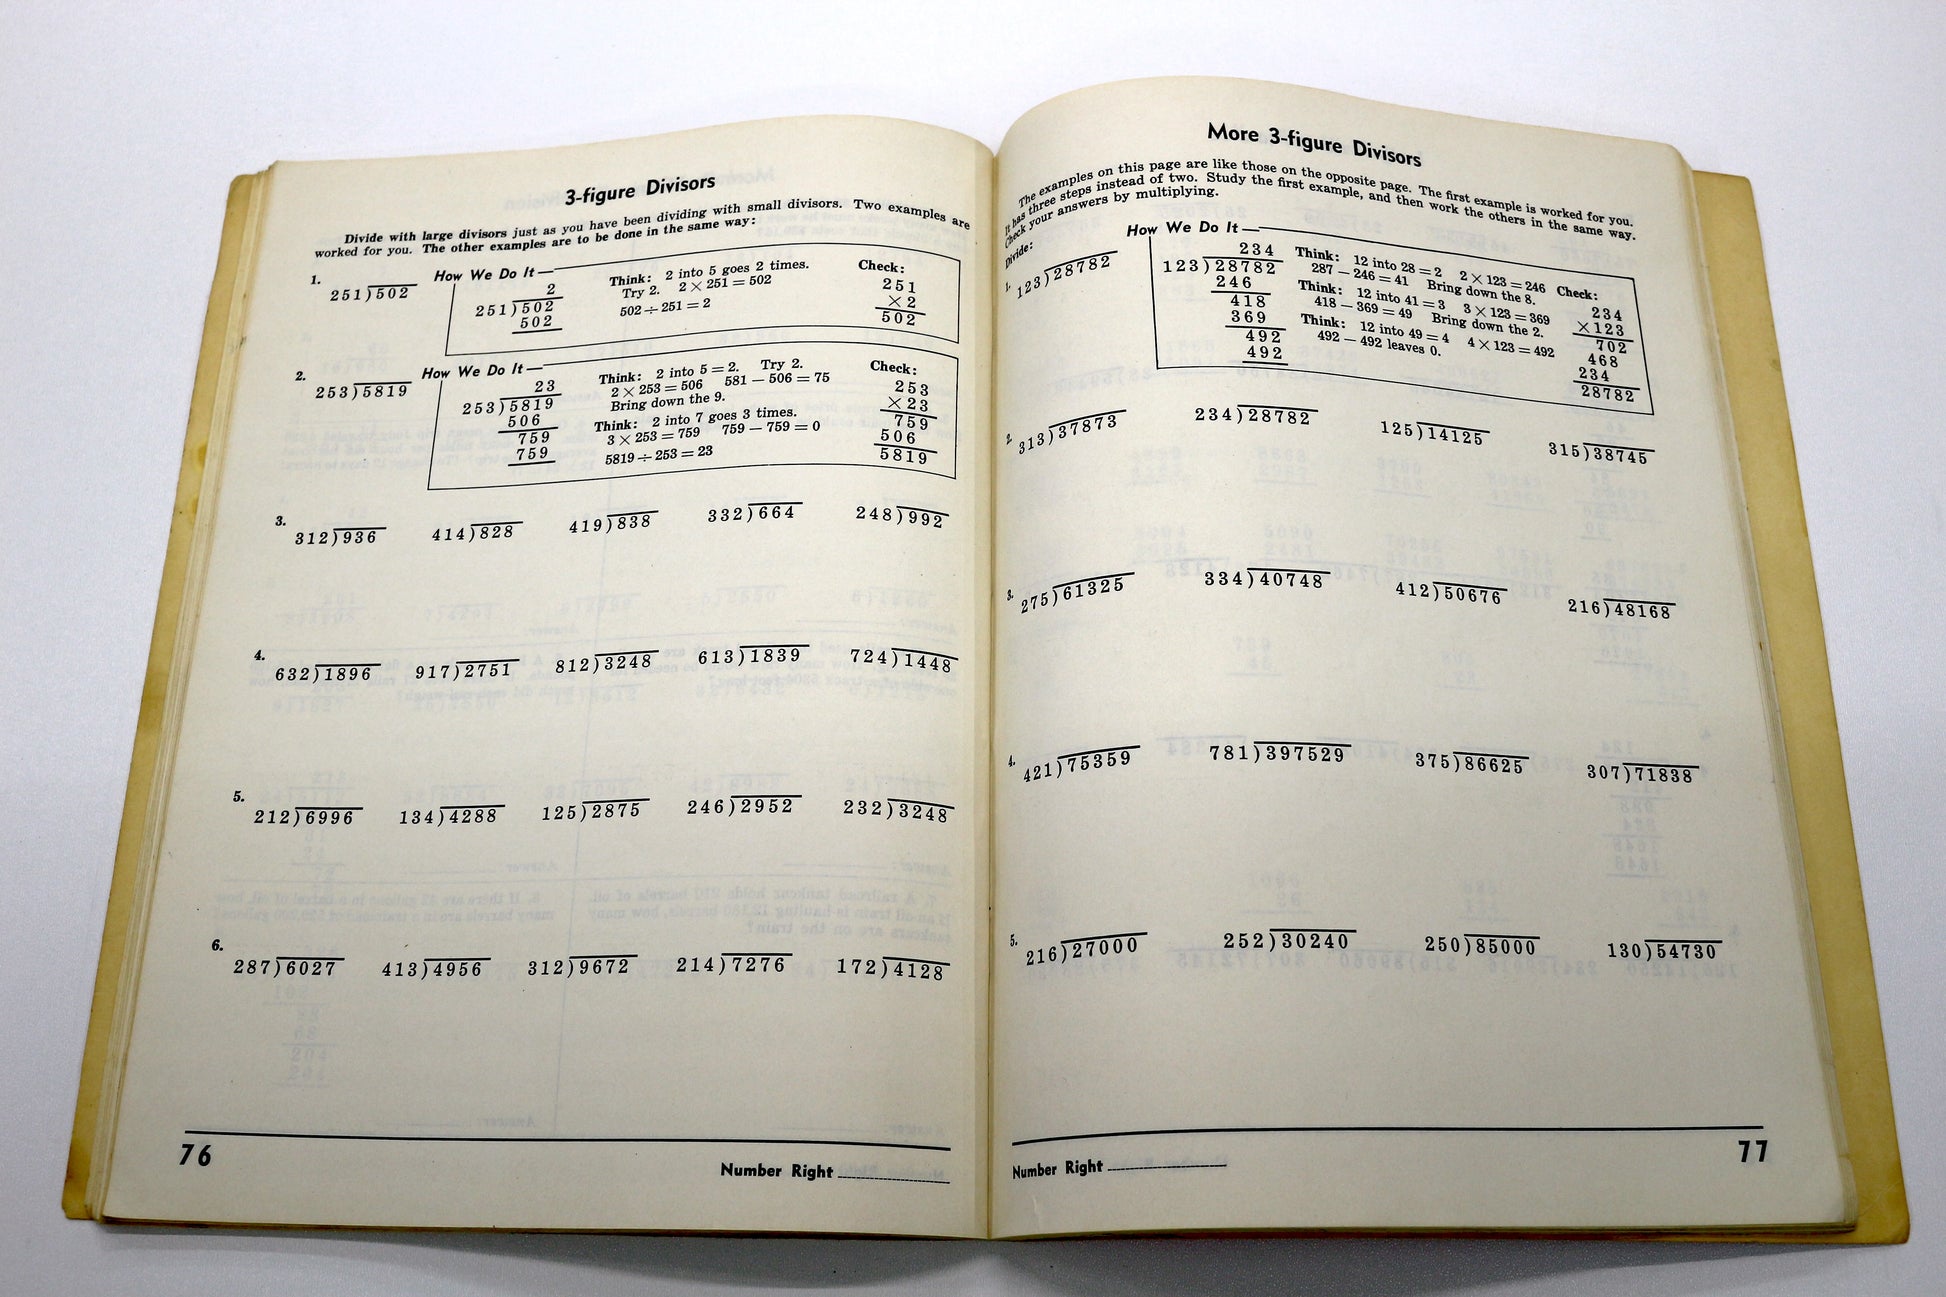 3-figure Divisors
Divide with large divisors just as you have been dividing with small divisors. Two examples are
worked for you. The other examples are to be done in the same way:
1.
251)502
How We Do It—
2
251)502
502
Think: 2 into 5 goes 2 times.
Try 2. 2 × 251 = 502
502 ÷ 251 = 2
Check:
251
×2
502
2.
253)5819
How We Do It—
23
253)5819
506
759
759
Think: 2 into 5 = 2. Try 2.
2 × 253 = 506 581 − 506 = 75
Bring down the 9.
Think: 2 into 7 goes 3 times.
3 × 253 = 759 759 − 759 = 0
5819 ÷ 253 = 23
Check:
253
×23
759
506
5819
3.
312)936 414)828 419)838 332)664 248)992
4.
632)1896 917)2751 812)3248 613)1839 724)1448
5.
212)6996 134)4288 125)2875 246)2952 232)3248
6.
287)6027 413)4956 312)9672 214)7276 172)4128
76
Number Right
More 3-figure Divisors
The examples on this page are like those on the opposite page. The first example is worked for you.
It has three steps instead of two. Study the first example, and then work the others in the same way.
Check your answers by multiplying.
Divide:
1.
123)28782
How We Do It—
234
123)28782
246
418
369
492
492
Think: 12 into 28 = 2 2 × 123 = 246
287 − 246 = 41 Bring down the 8.
Think: 12 into 41 = 3 3 × 123 = 369
418 − 369 = 49 Bring down the 2.
Think: 12 into 49 = 4 4 × 123 = 492
492 − 492 leaves 0.
Check:
234
×123
702
468
234
28782
2.
313)37873 234)28782 125)14125 315)38745
3.
275)61325 334)40748 412)50676 216)48168
4.
421)75359 781)397529 375)86625 307)71838
5.
216)27000 252)30240 250)85000 130)54730
Number Right
77